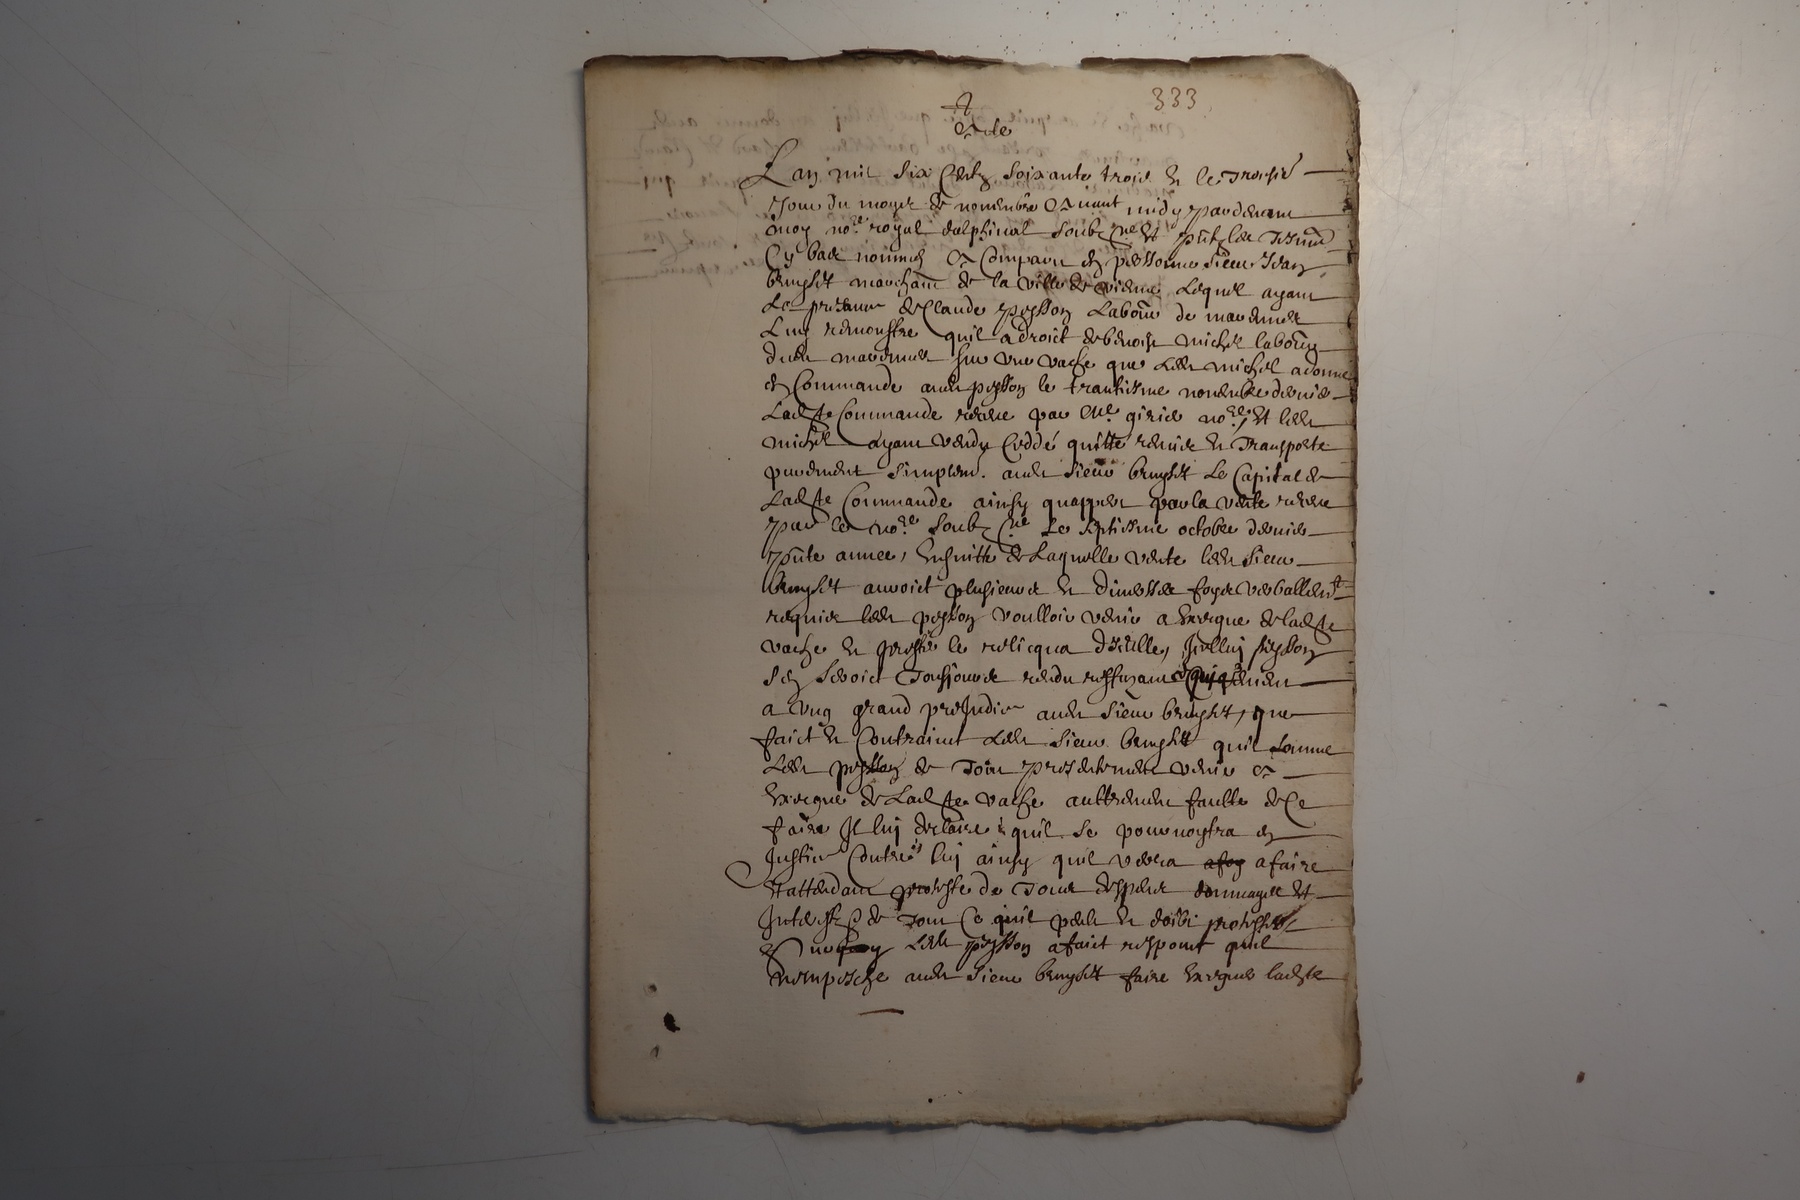 333
Acte
L'an mil six centz soixante trois & le troisie
Jour du moys de novembre avant midy pardevant
moy no.re royal dalphinal soubz.ne et p̄ntz les tesmoins
Cy bas nommes a Comparu en personne sieur Jean
bruyset marchant de la ville de vienne Lequel ayant
Le presance de Claude peysson Labour de
Luy remonstre quil a droict de benoist michel labour
dudt sur une vache que ledt michel a donne
en Commande audt peysson le trantiesme novembre dernier
Ladste Commande receue par Me girier no.re, et ledt
michel ayant vendu Ceddé quitté remis & transporte
purement simplem. audt sieur bruyset Le Capital de
Ladste Commande ainsy quappert par la vente receue
par le no.re soubz.ne Le septiesme octobre dernier
p̄nte annee, Ensuitte de Laquelle vente ledt sieur
bruyset auroict plusieurs & diverses foys verballemt
requis ledt peysson voulloir venir a Exegue de ladste
vache & le relicqua d'icelle, Icelluy peysson
s'en seroict tousjours rendu reffuzant
a ung grand preJudice audt sieur bruyset, que
faict & Contraint ledt sieur bruyset quil somme
Ledt peysson de tout presentement venir a
Exegue de Ladste vache aultrement faulte de Ce
faire Il luy declaire quil se pourvoyra en
Justice Contre luy ainsy quil verra a faire
Et attendant proteste de tous despens dommages et
Interestz & de tout Ce quil peult & doibt protester
ledt peysson a faict response quil
n'empesche audt sieur bruyset faire Exeguer ladste